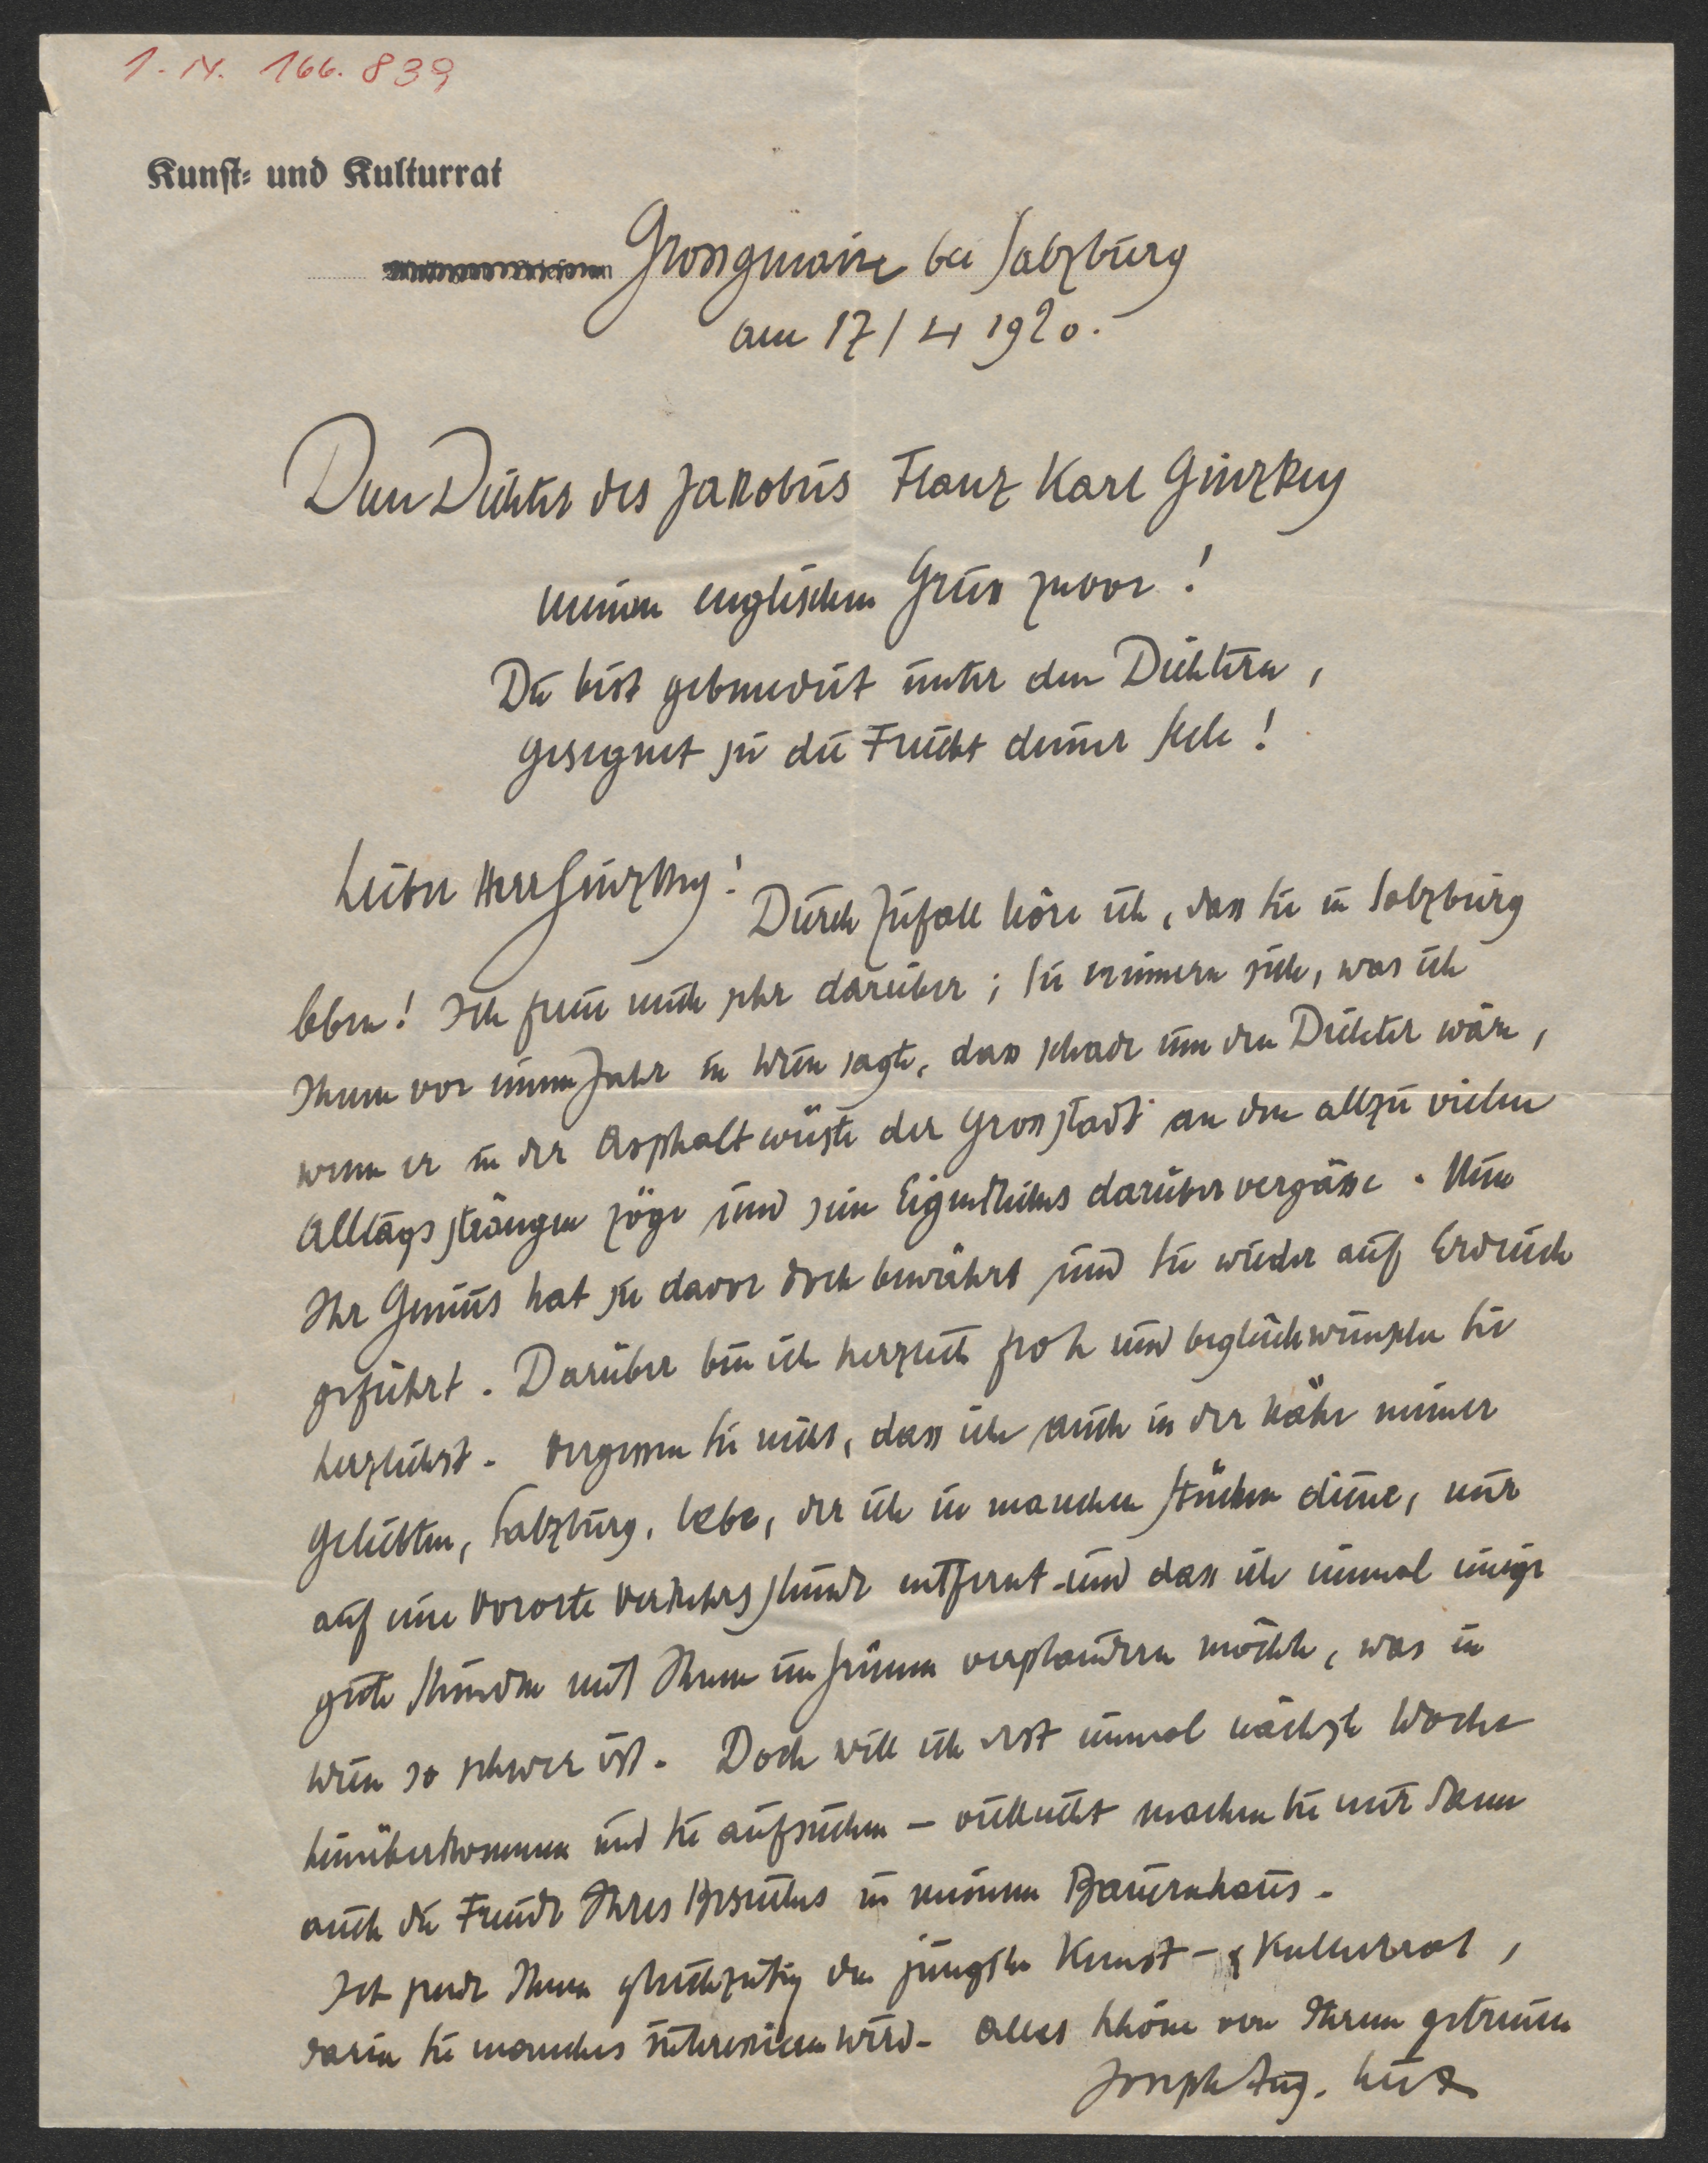 I. N. 166.839
Kunst- und Kulturrat
Grossgmain bei Salzburg
am 17/4 1920.
Dem Dichter des Jakobus Franz Karl Ginzkey
meinen englischen Gruss zuvor!
Du bist gebenedeit unter den Dichtern,
gesegnet sei die Frucht deiner Seele!
Lieber Herr Ginzkey!
Durch Zufall höre ich, dass Sie in Salzburg
leben! Ich freue mich sehr darüber; Sie erinnern sich, was ich
Ihnen vor einem Jahr in Wien sagte, dass schade um den Dichter wäre,
wenn er in der Asphaltwüste der Grossstadt an den allzu vielen
Alltagssträngen zöge und sein Eigentliches darüber vergässe. Nun
Ihr Genius hat sie davor doch bewahrt und Sie wieder auf Erdreich
geführt. Darüber bin ich herzlich froh und beglückwünsche Sie
herzlichst. Vergessen Sie nicht, dass ich auch in der Nähe meiner
Geliebten, Salzburg, lebe, der ich in manchen Stücken diene, nur
auf eine Vororte Verkehrsstunde entfernt und dass ich einmal einige
gute Stunden mit Ihnen im Grünen verplaudern möchte, was in
Wien so schwer ist. Doch will ich erst einmal nächste Woche
hinüberkommen und Sie aufsuchen – vielleicht machen Sie mir dann
auch die Freude Ihres Besuches in meinem Bauernhaus.
Ich sende Ihnen gleichzeitig den jüngsten Kunst- & Kulturrat,
darin Sie manches interessieren wird. Alles Schöne von Ihrem getreuen
Joseph Aug. Lux